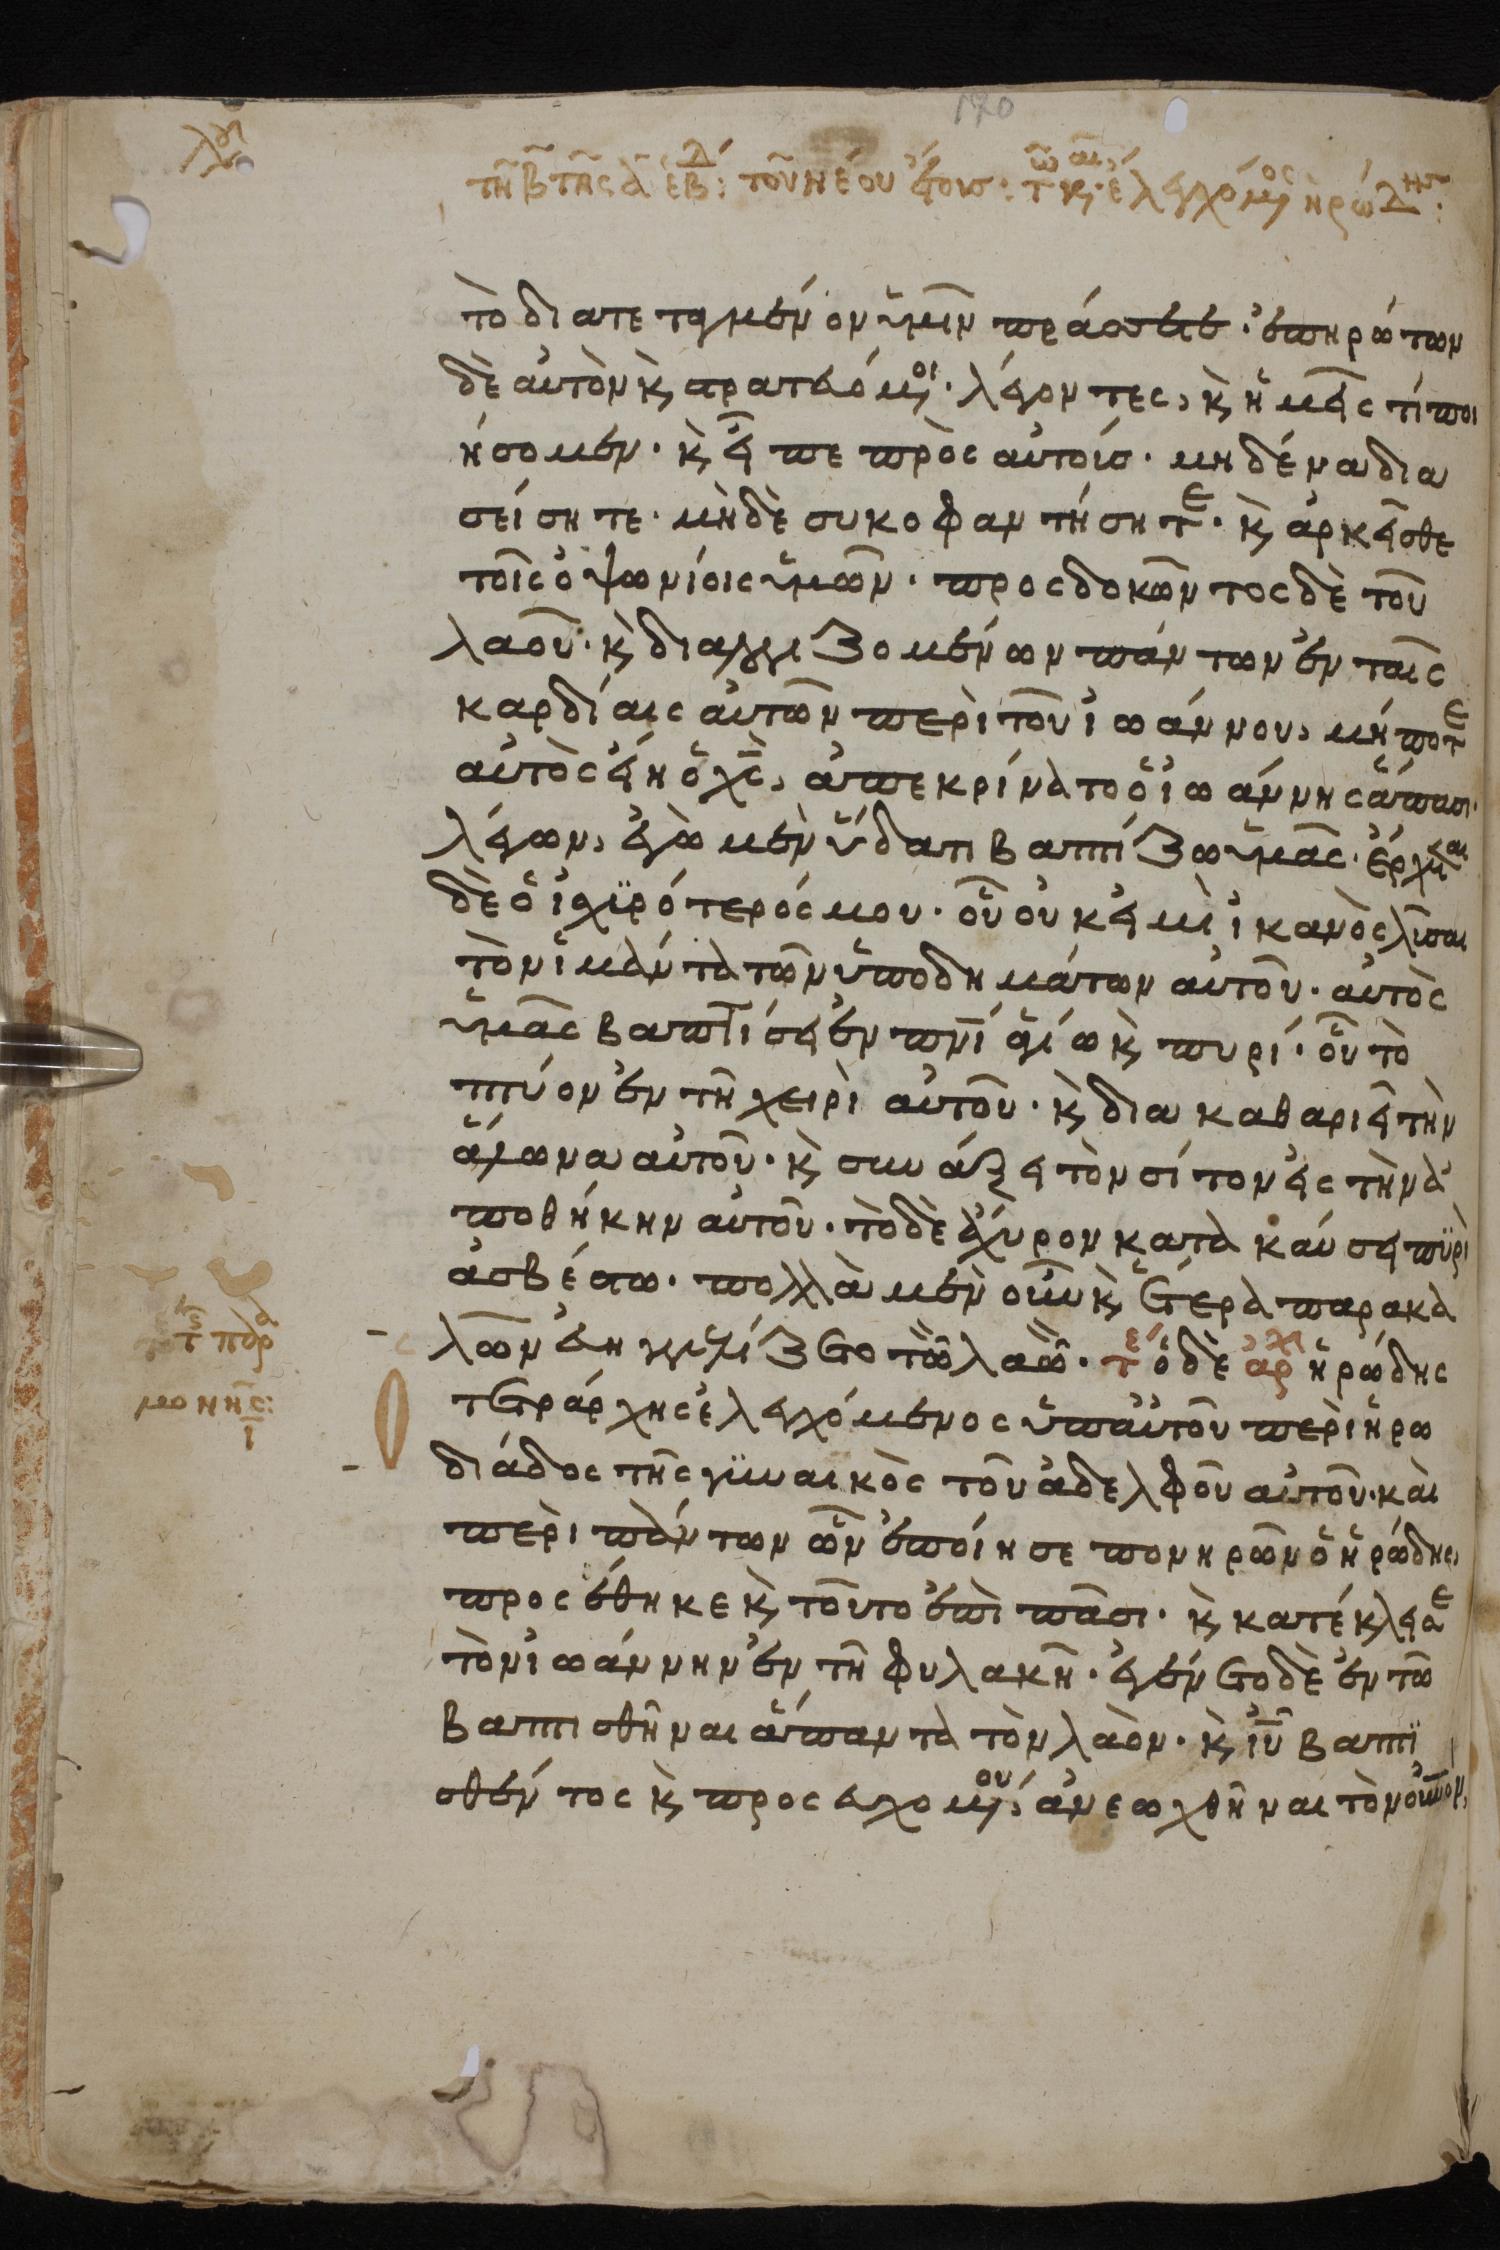 170
τῆ β τῆς α ἑβδ: τοῦ νέου ἔτους: τῶ καιρῶ ἐλεγχόμενος ἡρώδης:
τὸ διατεταγμένον ὑμῖν πράσσετε· ἐπηρώτων
δὲ αὐτὸν κ στρατευόμενοι· λέγοντες, κ ἡμεῖς τί ποι
ήσομεν· κ εἶπε πρὸς αὐτούς· μηδένα δια
σείσητε· μὴδὲ συκοφαντήσητε· κ ἀρκεῖσθε
τοῖς ὀψωνίοις ὑμῶν· προσδοκῶντος δὲ τοῦ
λαοῦ· κ διαλογιζομένων πάντων ἐν ταῖς
καρδίαις αὐτῶν περὶ τοῦ ἰωάννου, μήποτε
αὐτὸς εἴη ὁ χς, ἀπεκρίνατο ὁ ἰωάννης ἅπασι·
λέγων, ἐγὼ μὲν ὕδατι βαπτίζω ὑμᾶς· ἔρχεται
δὲ ὁ ἰσχϋρότερός μου· οὗ οὐκ εἰμὶ ἱκανὸς λῦσαι
τὸν ἱμάντα τῶν ὑποδημάτων αὐτοῦ· αὐτὸς
ὑμᾶς βαπτίσει ἐν πνι ἁγίω κ πυρί· οὗ τὸ
πτύον ἐν τῆ χειρὶ αὐτοῦ· κ διακαθαριεῖ τὴν
ἅλωνα αὐτοῦ· κ συνάξει τὸν σίτον εἰς τὴν ἀ
ποθήκην αὐτοῦ· τὸ δὲ ἄχυρον κατακαύσει πϋρὶ
ἀσβέστω· πολλὰ μὲν οὖν κ ἕτερα παρακα
λῶν εὐηγγελίζετο τῶ λαῶ· τέ ὁ δὲ ἀρχ ἡρώδης
τετράρχης ἐλεγχόμενος ὑπ αὐτοῦ περὶ ἡρω
διάδος τῆς γϋναικὸς τοῦ ἀδελφοῦ αὐτοῦ· καὶ
περὶ πάντων ὧν ἐποίησε πονηρῶν ὁ ἡρώδης,
προσέθηκε κ τοῦτο ἐπὶ πᾶσι· κ κατέκλεισε
τὸν ἰωάννην ἐν τῆ φυλακῆ· ἐγένετο δὲ ἐν τῶ
βαπτισθῆναι ἅπαντα τὸν λαόν· κ ιυ βαπτϊ
σθέντος κ προσευχομένου, ἀνεωχθῆναι τὸν οὐρανον,